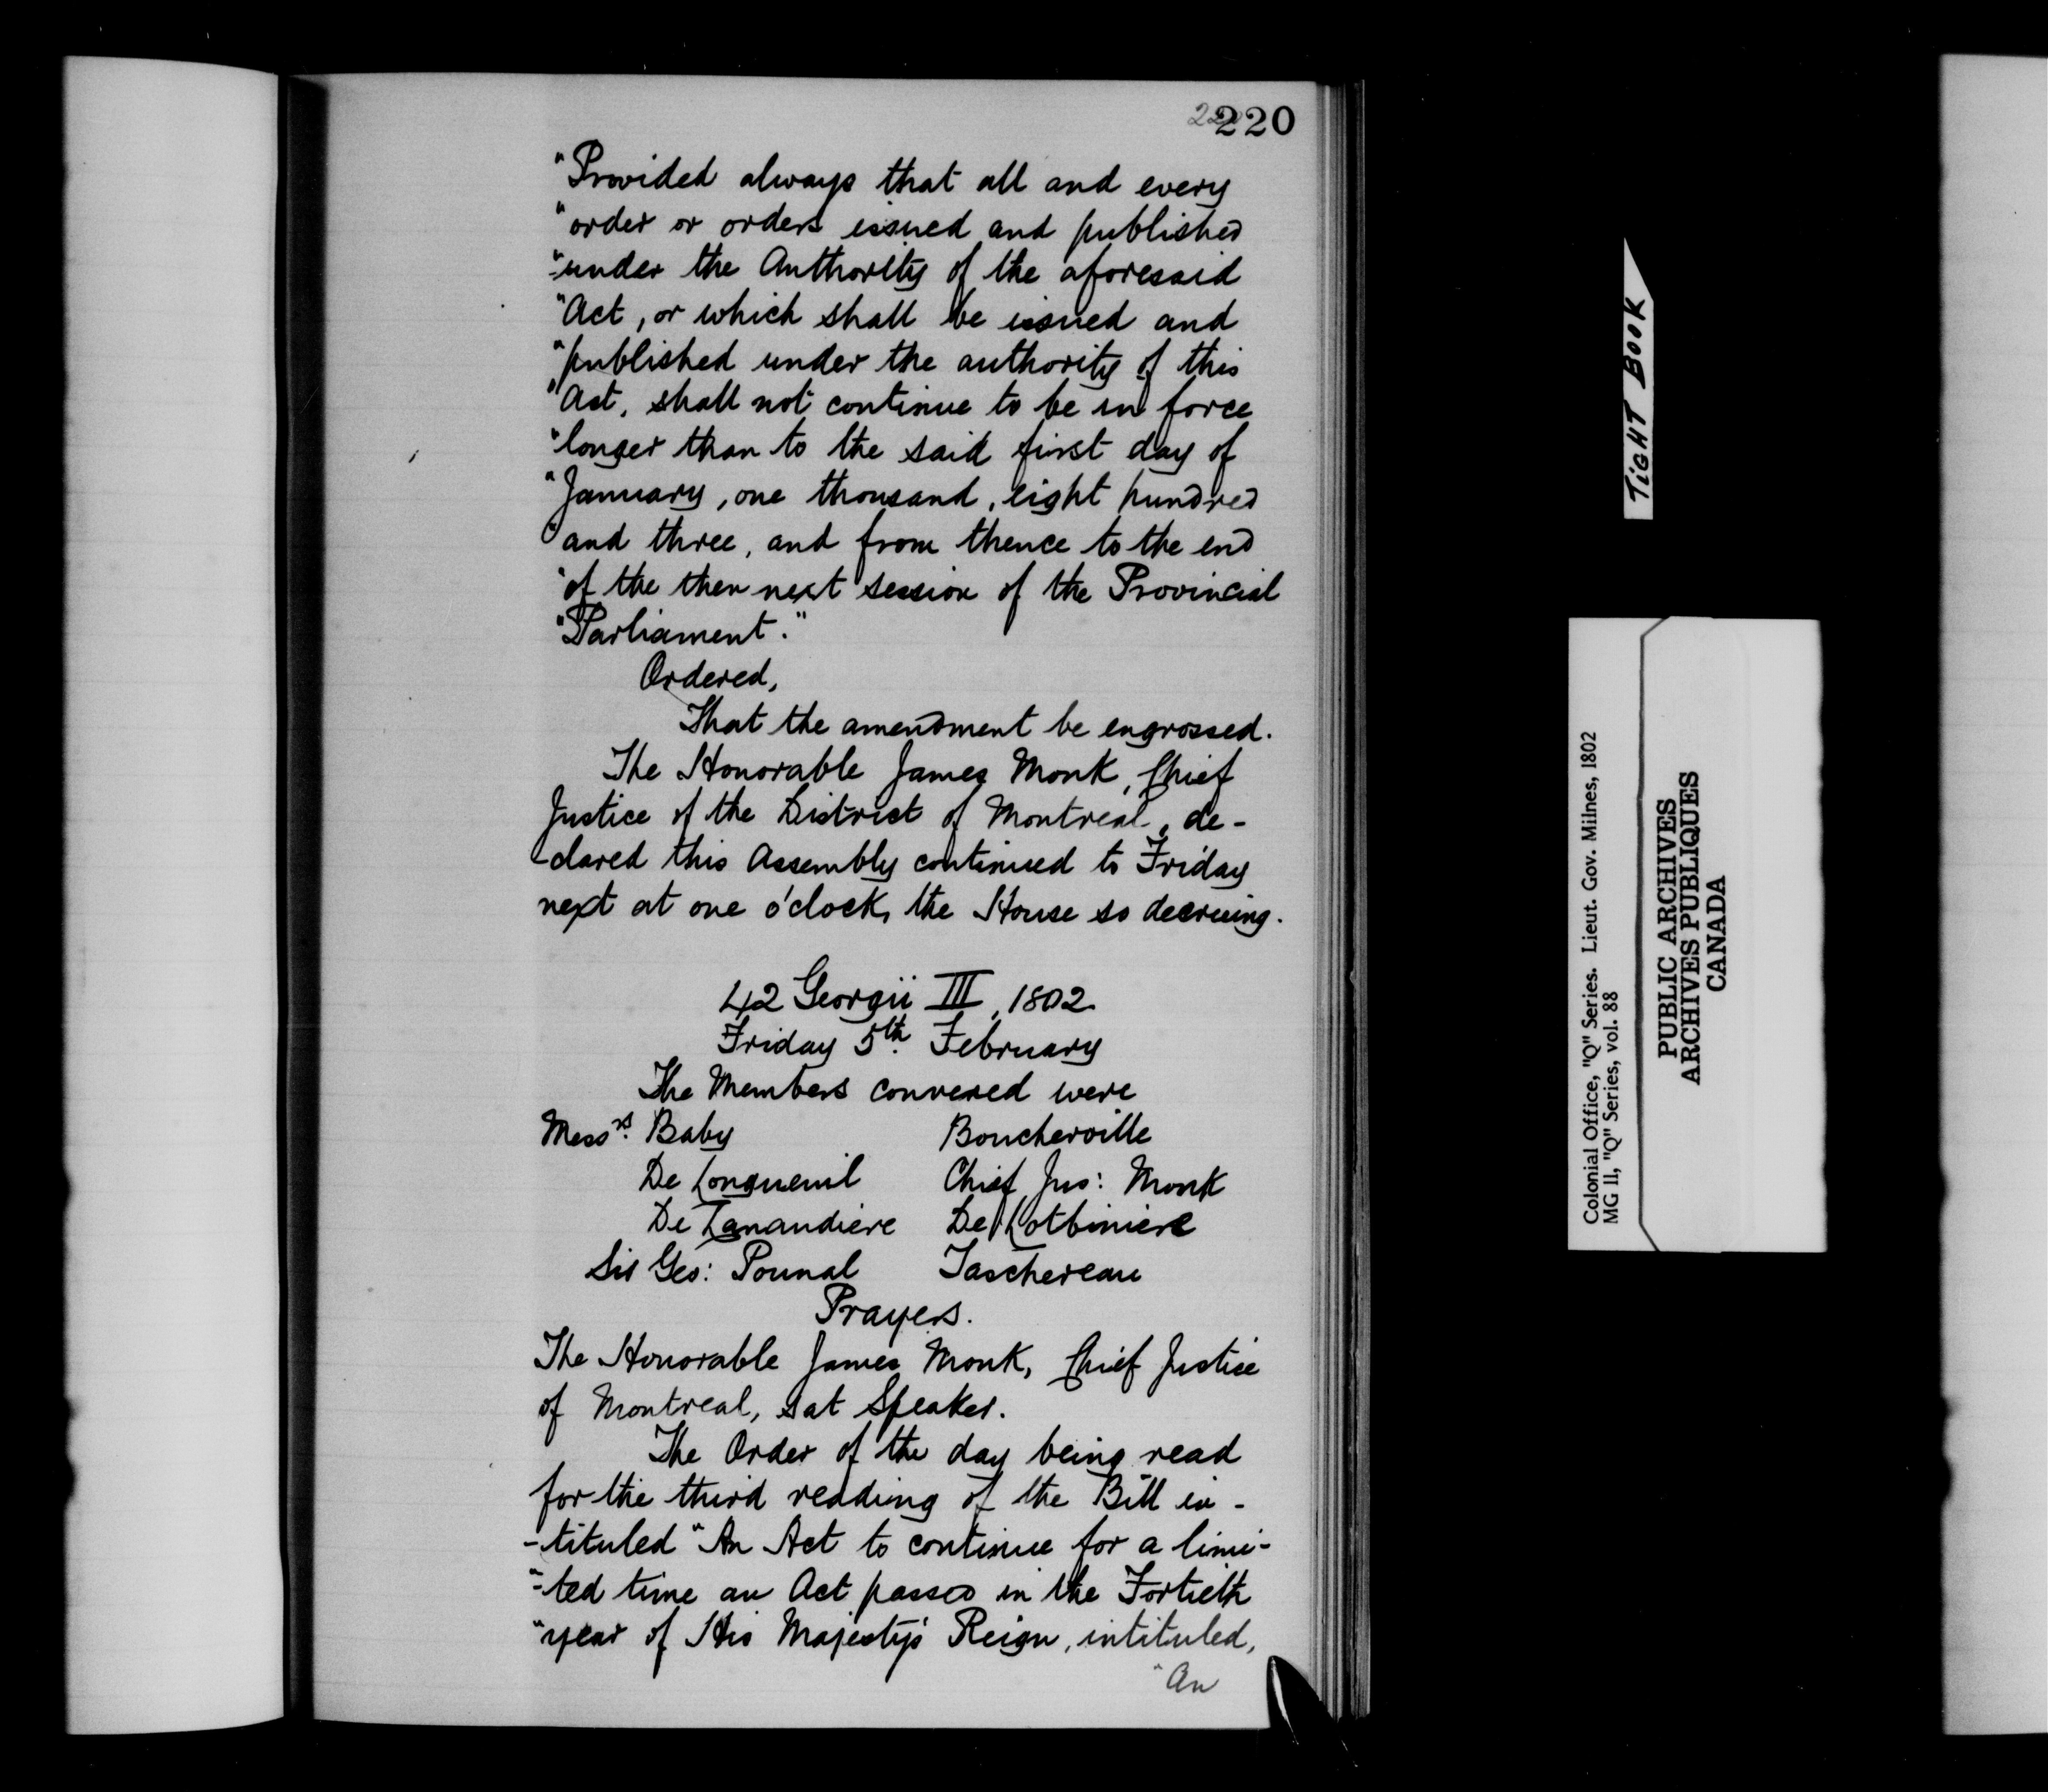 220
"Provided always that all and every
"order or orders issued and published
"under the Authority of the aforesaid
"Act, or which shall be issued and
"published under the authority of this
"Act, shall not continue to be in force
"longer than to the said first day of
"January, one thousand, eight hundred
"and three, and from thence to the end
"of the then next session of the Provincial
"Parliament."
Ordered,
That the amendment be engrossed.
The Honorable James Monk, Chief
Justice of the District of Montreal, de-
-clared this Assembly continued to Friday
next at one o'clock, the House so decreeing.
42 Georgii III, 1802
Friday 5th February
The Members convened were
Messrs. Baby Boucherville
De Longueuil Chief Jus: Monk
De Lanaudiere De Lotbiniere
Sir Geo: Pownal Taschereau
Prayers.
The Honorable James Monk, Chief Justice
of Montreal, sat Speaker.
The Order of the day being read
for the third reading of the Bill in-
-tituled "An Act to continue for a limi-
"-ted time an Act passed in the Fortieth
"year of His Majesty's Reign, intituled,
"An
TIGHT BOOK
Colonial Office, "Q" Series. Lieut. Gov. Milnes, 1802
MG 11, "Q" Series, vol. 88
PUBLIC ARCHIVES
ARCHIVES PUBLIQUES
CANADA